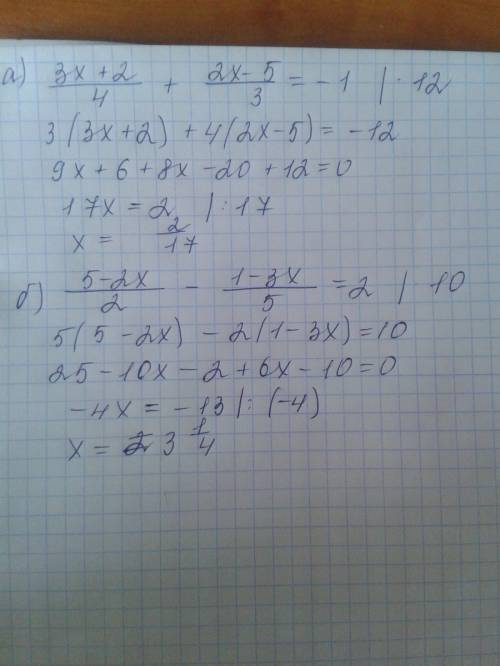 а) (3x+2)/4 + (2x-5)/3 = -1 | · 12
3(3x+2) + 4(2x-5) = -12
9x+6+8x-20+12=0
17x = 2 | : 17
x = 2/17
б) (5-2x)/2 - (1-3x)/5 = 2 | 10
5(5-2x) - 2(1-3x) = 10
25-10x-2+6x-10=0
-4x = -13 | : (-4)
x = 3 1/4